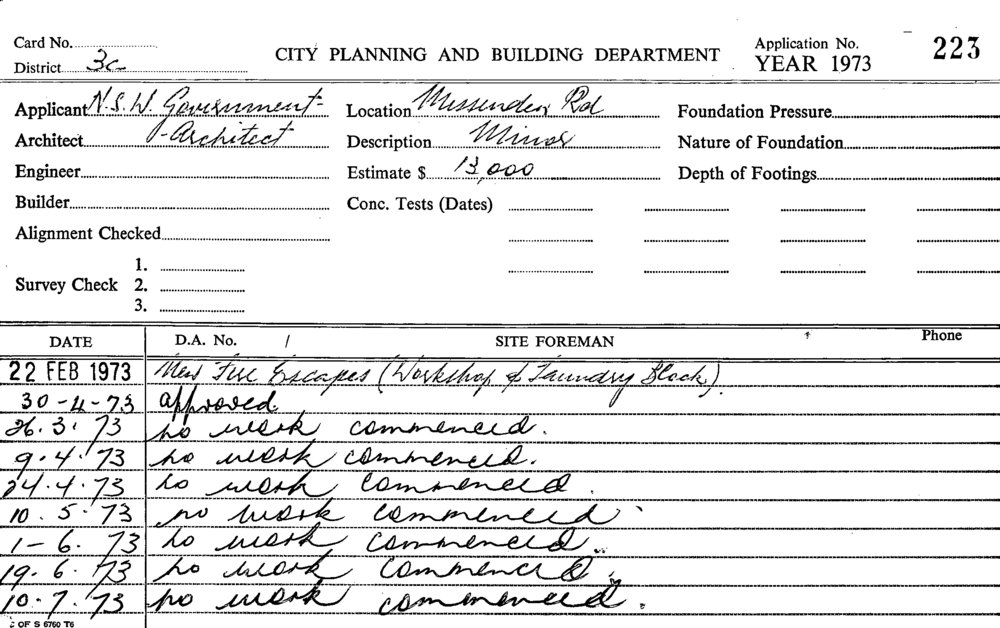 Card No.
District 3c
CITY PLANNING AND BUILDING DEPARTMENT
Application No. 223
YEAR 1973
Applicant N.S.W. Government
Location Missenden Rd
Foundation Pressure
Architect Architect
Description Minor
Nature of Foundation
Engineer
Estimate $ 13,000
Depth of Footings
Builder
Conc. Tests (Dates)
Alignment Checked
Survey Check 1.
2.
3.
DATE D.A. No. / SITE FOREMAN Phone
22 FEB 1973 New Fire Escapes (Workshop & Laundry Block).
30-4-73 approved.
26.3.73 no work commenced.
9.4.73 no work commenced.
24.4.73 no work commenced.
10.5.73 no work commenced
1-6.73 no work commenced..
19.6.73 no work commenced.
10.7.73 no work commenced.
OF S 6760 T6